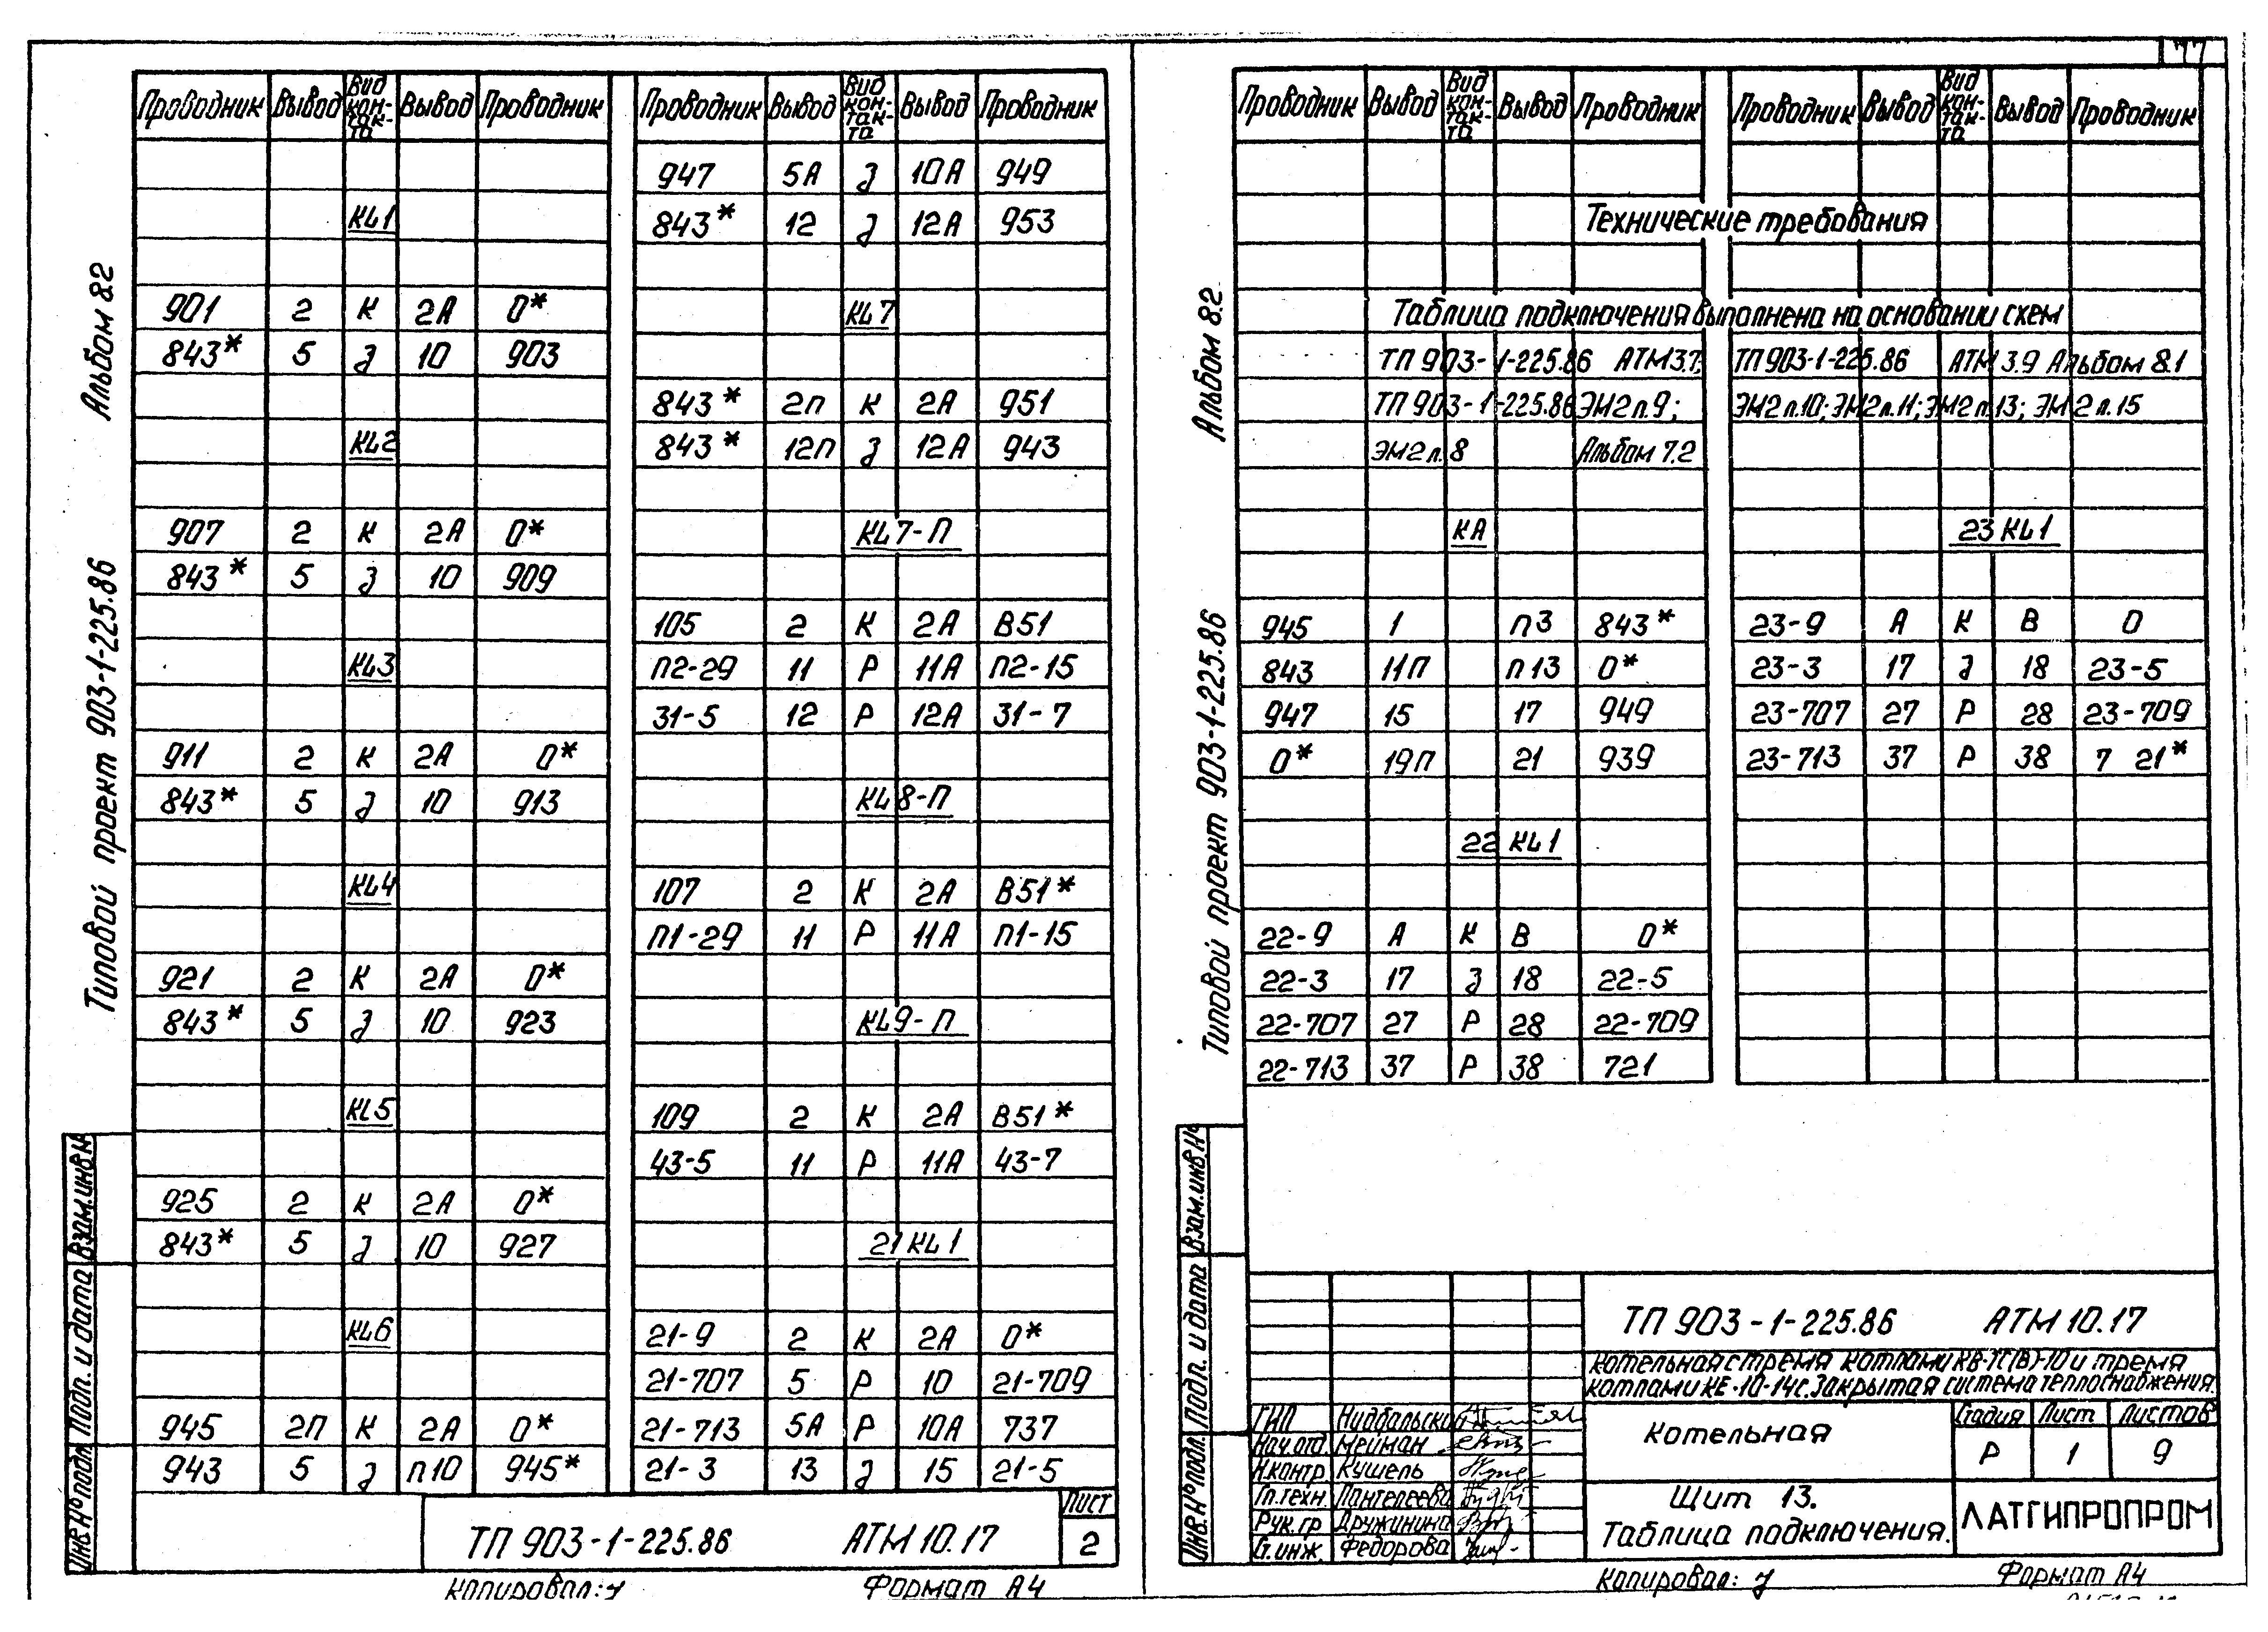 77
Альбом 8.2
Типовой проект 903-1-225.86
Взам.инв.№
Подп. и дата
Инв.№ подл.
Проводник Вывод Вид кон-так-та Вывод Проводник
KL1
901 2 К 2А 0*
843* 5 З 10 903
KL2
907 2 К 2А 0*
843* 5 З 10 909
KL3
911 2 К 2А 0*
843* 5 З 10 913
KL4
921 2 К 2А 0*
843* 5 З 10 923
KL5
925 2 К 2А 0*
843* 5 З 10 927
KL6
945 2П К 2А 0*
943 5 З П10 945*
Проводник Вывод Вид кон-так-та Вывод Проводник
947 5А З 10А 949
843* 12 З 12А 953
KL7
843* 2П К 2А 951
843* 12П З 12А 943
KL7-П
105 2 К 2А В51
П2-29 11 Р 11А П2-15
31-5 12 Р 12А 31-7
KL8-П
107 2 К 2А В51*
П1-29 11 Р 11А П1-15
KL9-П
109 2 К 2А В51*
43-5 11 Р 11А 43-7
21KL1
21-9 2 К 2А 0*
21-707 5 Р 10 21-709
21-713 5А Р 10А 737
21-3 13 З 15 21-5
ТП 903-1-225.86 АТМ 10.17
Лист
2
Копировал:
Формат А4
Альбом 8.2
Типовой проект 903-1-225.86
Взам.инв.№
Подп. и дата
Инв.№ подл.
Проводник Вывод Вид кон-так-та Вывод Проводник
Проводник Вывод Вид кон-так-та Вывод Проводник
Технические требования
Таблица подключения выполнена на основании схем
ТП 903-1-225.86 АТМ3.7; ТП 903-1-225.86 АТМ 3.9 Альбом 8.1
ТП 903-1-225.86 ЭМ2 л.9; ЭМ2 л.10; ЭМ2 л.11; ЭМ2 л.13; ЭМ2 л.15
ЭМ2 л.8 Альбом 7.2
КА
945 1 П3 843*
843 11П П13 0*
947 15 17 949
0* 19П 21 939
22KL1
22-9 А К В 0*
22-3 17 З 18 22-5
22-707 27 Р 28 22-709
22-713 37 Р 38 721
23KL1
23-9 А К В 0
23-3 17 З 18 23-5
23-707 27 Р 28 23-709
23-713 37 Р 38 7 21*
ТП 903-1-225.86 АТМ 10.17
Котельная с тремя котлами КВ-ТС(В)-10 и тремя
котлами КЕ-10-14с. Закрытая система теплоснабжения.
ГИП Нидбальский
Нач.отд. Мейман
Н.контр. Кушель
Гл.техн. Пантелеева
Рук.гр. Дружинина
Ст.инж. Федорова
Котельная
Стадия Лист Листов
Р 1 9
Щит 13.
Таблица подключения.
ЛАТГИПРОПРОМ
Копировал:
Формат А4